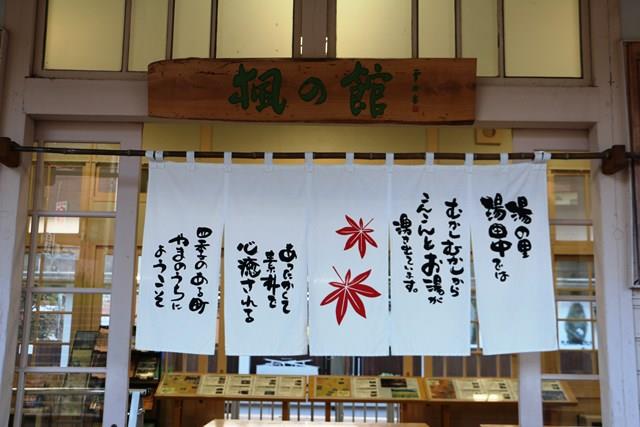 楓の館
湯の里
湯田中では
むかしむかしから
こんこんとお湯が
湧きでています。
あったかくて
素朴で
心癒される
四季のある町
やまのうちに
ようこそ